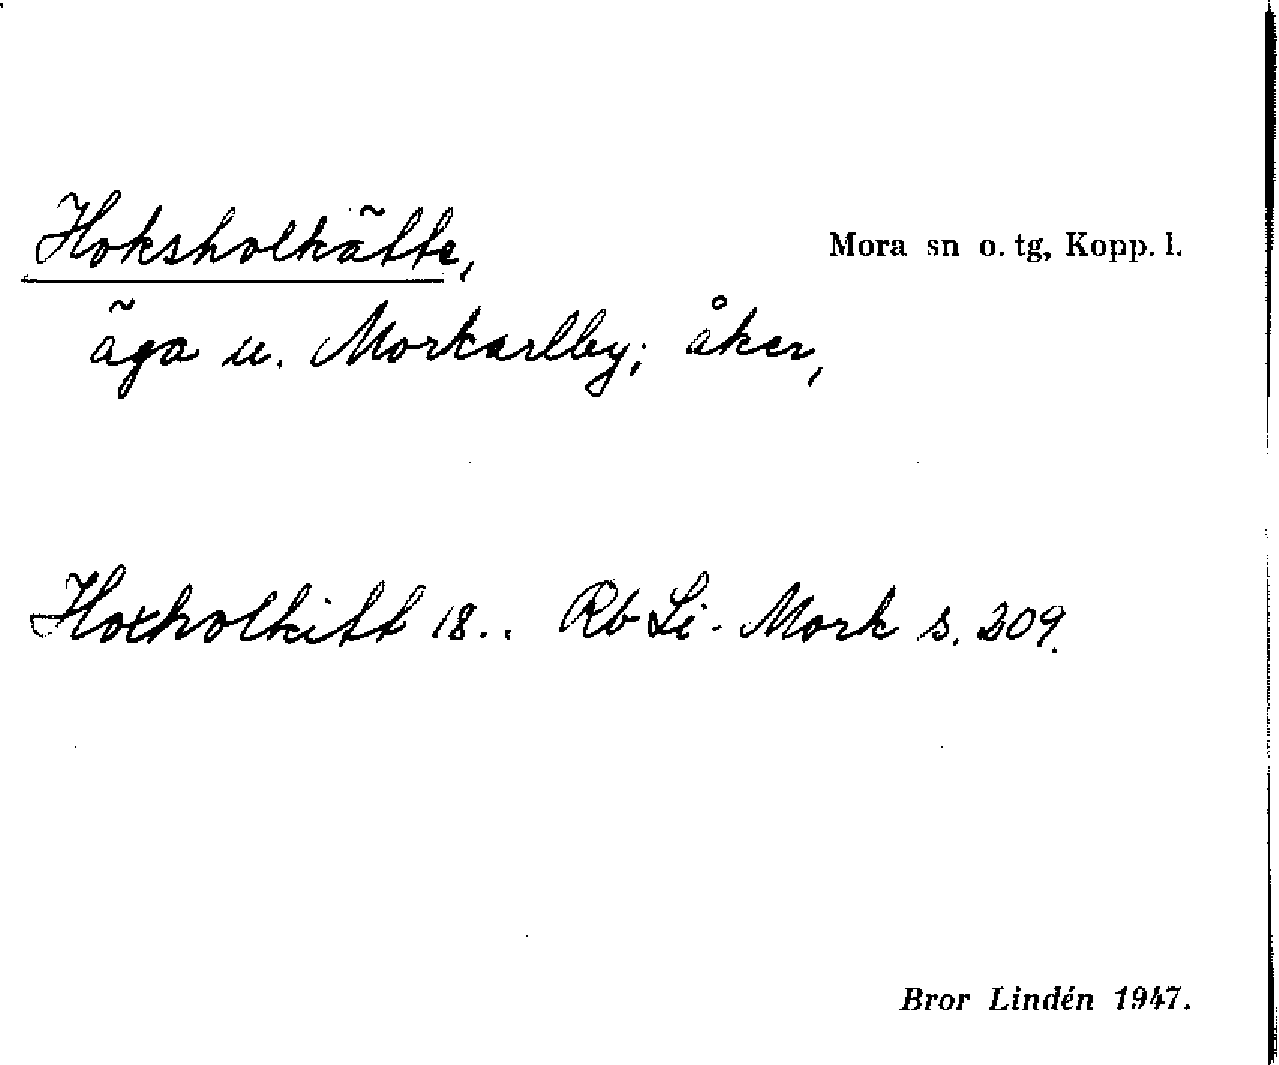 Hoksholkätte,
Mora sn o. tg, Kopp. l.
äga u. Morkarlby; åker,
Hoxholkitt 18.. Rb Li-Mork s. 209.
Bror Lindén 1947.